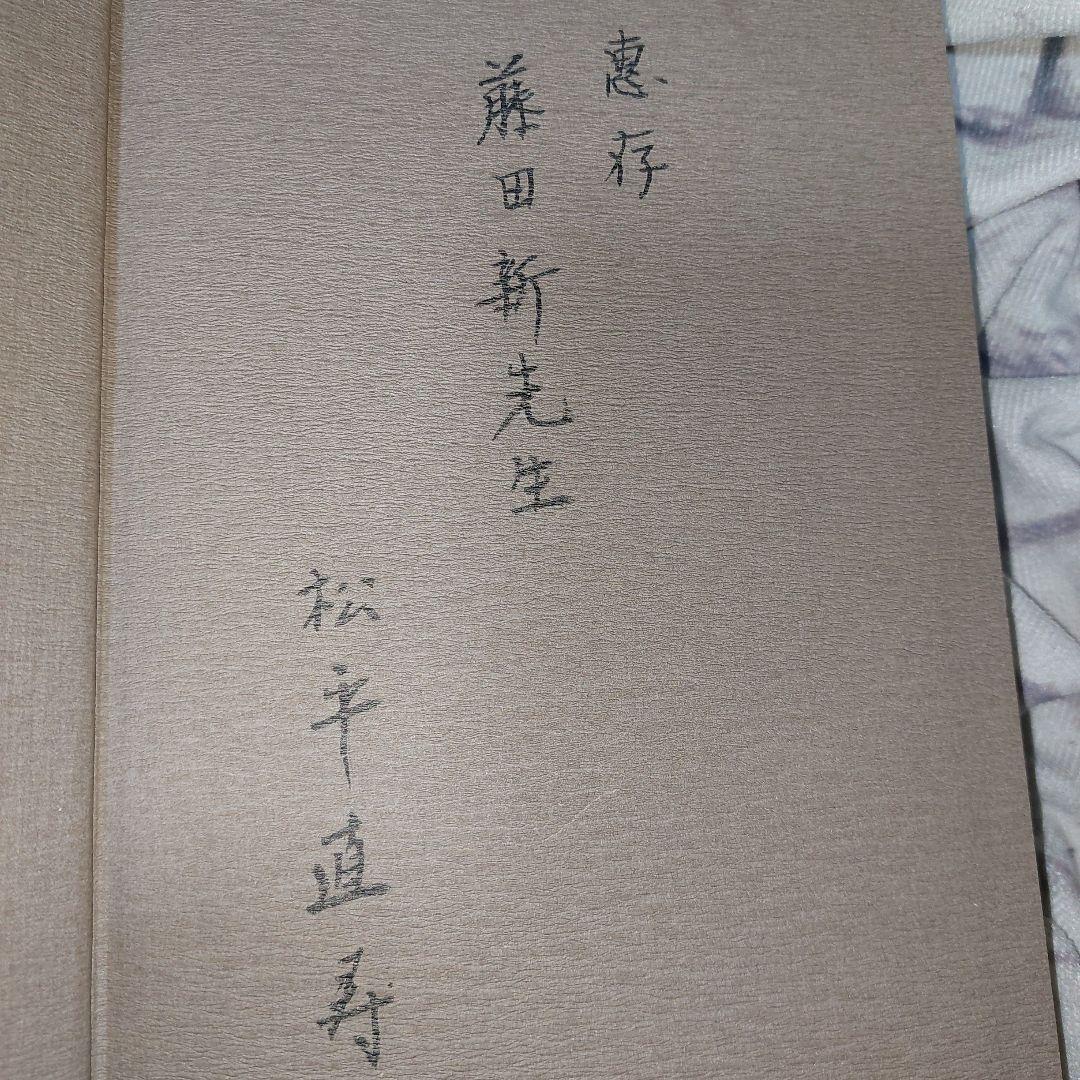 惠存
藤田新先生
松平直寿